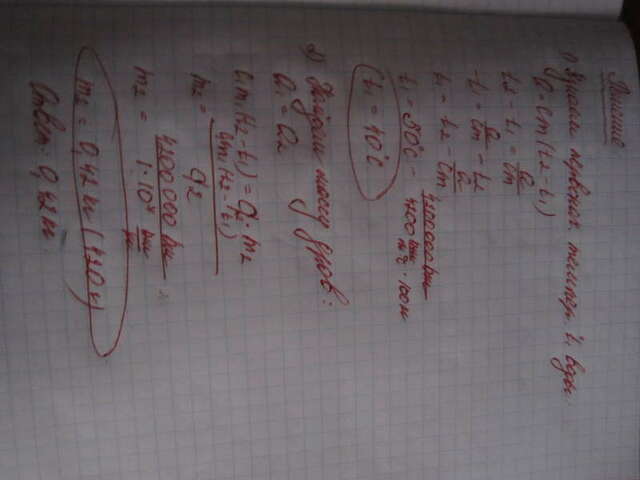 Решение
1) Узнаем первонач. темпер. t₁ воды
Q = cm(t₂ - t₁)
t₂ - t₁ = Q/cm
-t₁ = Q/cm - t₂
t₁ = t₂ - Q/cm
t₁ = 50°C - 4200000 Дж / 4200 Дж/кг°C · 100кг
t₁ = 40°C
2) Найдём массу дров:
Q₁ = Q₂
c₁m₁(t₂ - t₁) = q₂ · m₂
m₂ = c₁m₁(t₂ - t₁) / q₂
m₂ = 4200 000 Дж / 1 · 10⁷ Дж/кг
m₂ = 0,42 кг (420 г)
Ответ: 0,42 кг.